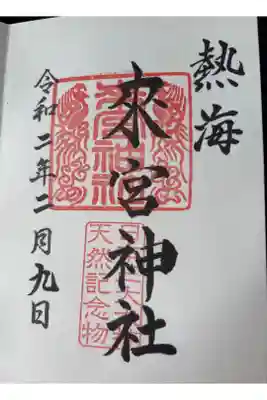 熱海
來宮神社
天然記念物
令和二年二月九日